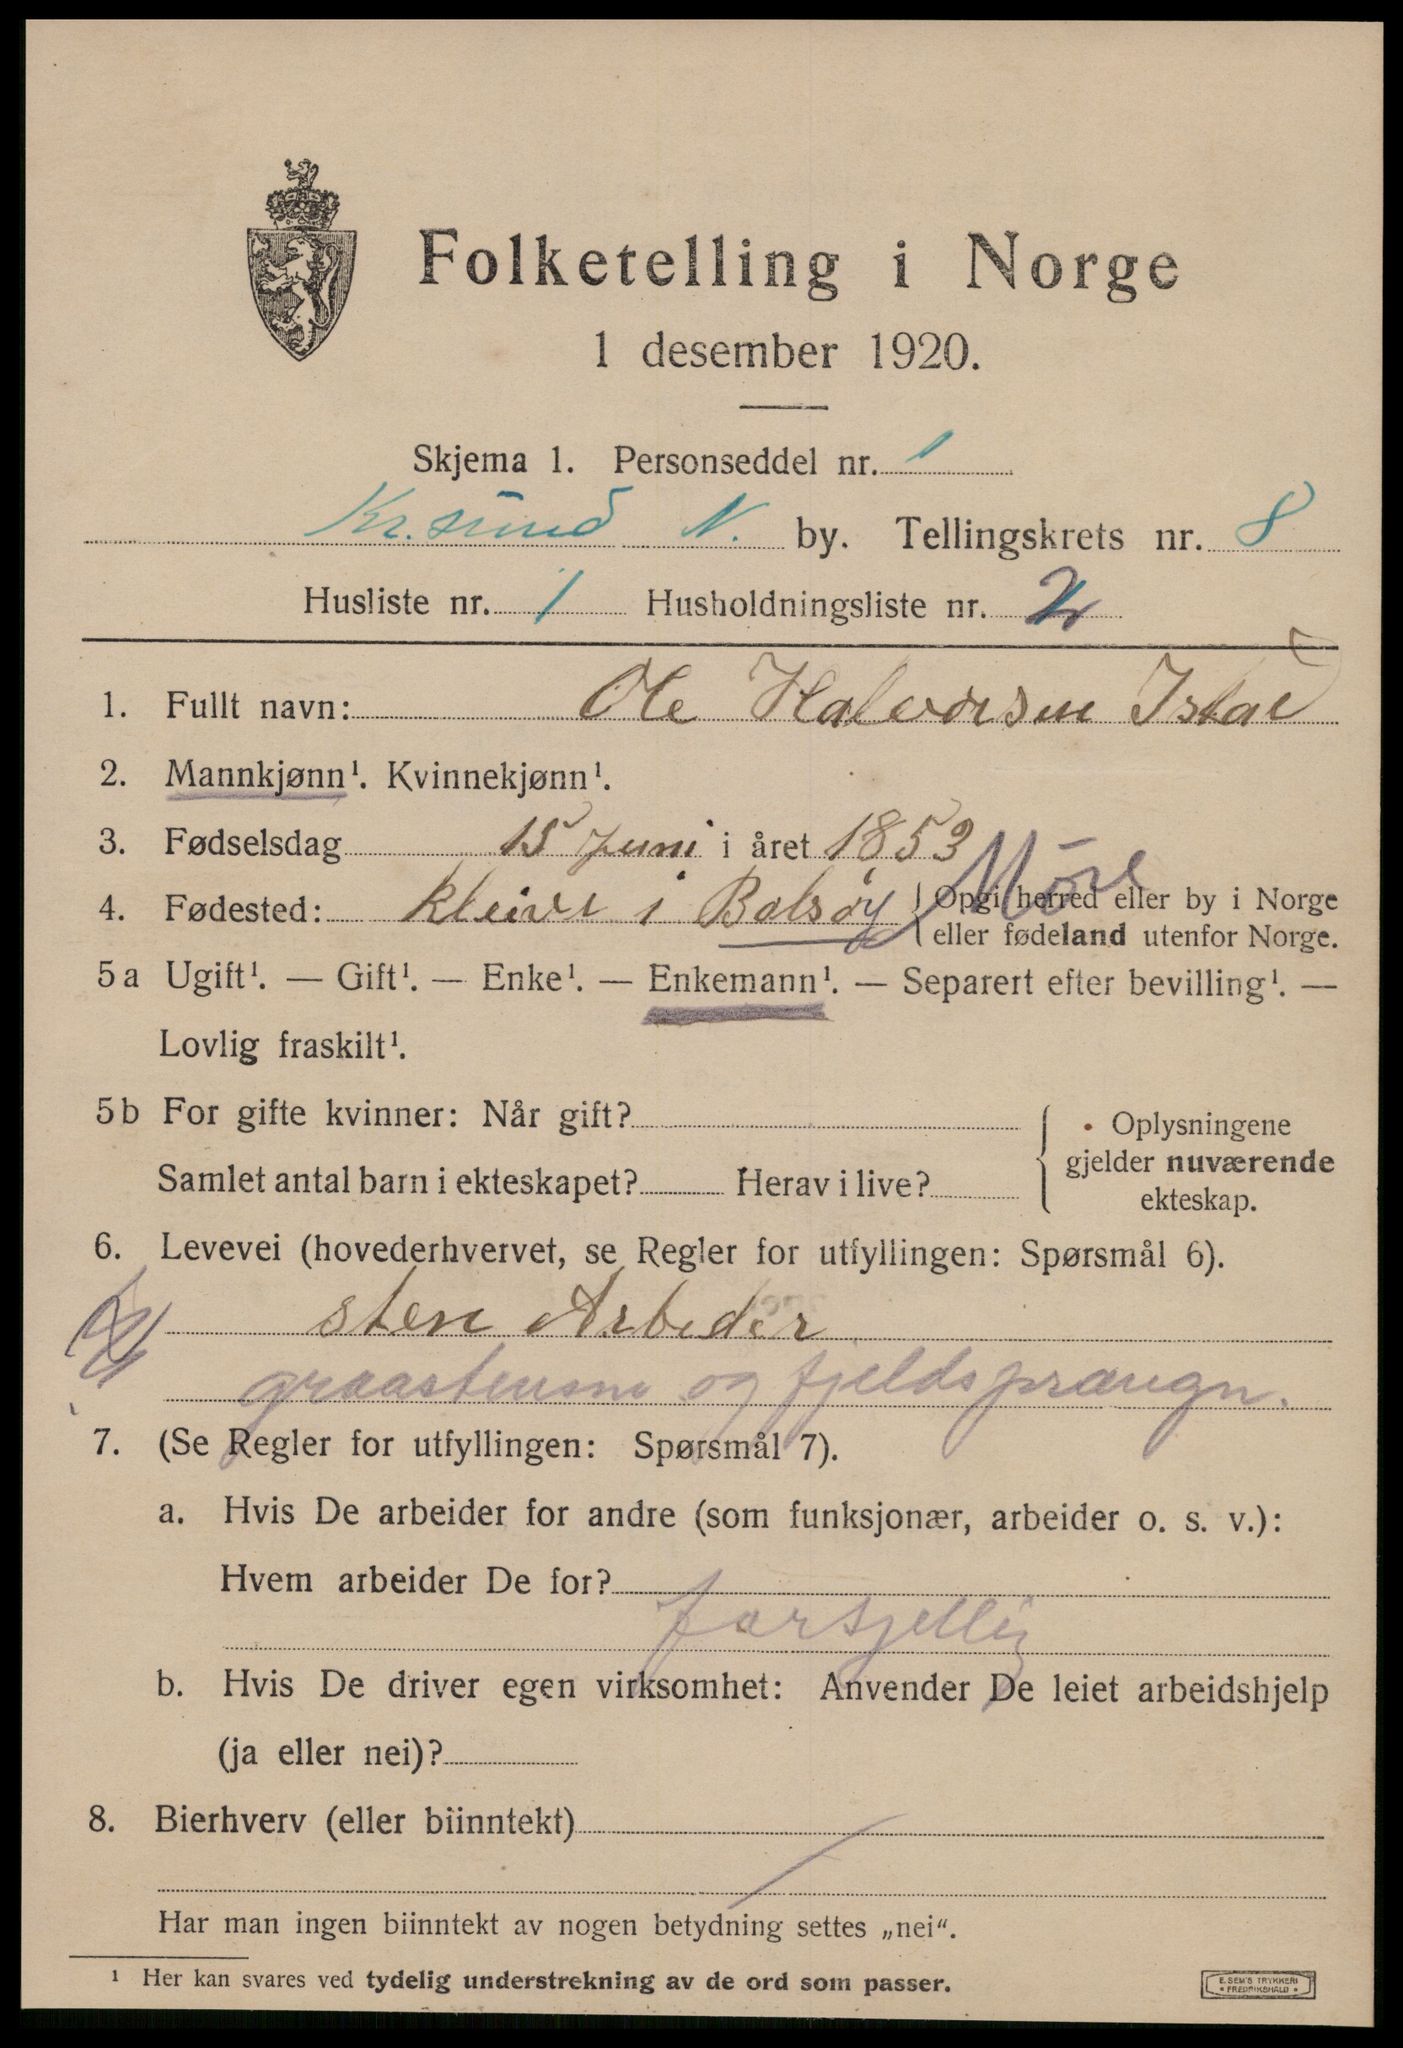 Folketelling i Norge
1 desember 1920.
Skjema 1. Personseddel nr. 1
Kr.sund N. by. Tellingskrets nr. 8
Husliste nr. 1 Husholdningsliste nr. 2
1. Fullt navn: Ole Halvorsen Istad
2. Mannkjønn¹. Kvinnekjønn¹.
3. Fødselsdag 15 Juni i året 1853
4. Fødested: kleive i Bolsøy Möre Opgi herred eller by i Norge
eller fødeland utenfor Norge.
5a Ugift¹. — Gift¹. — Enke¹. — Enkemann¹. — Separert efter bevilling¹. —
Lovlig fraskilt¹.
5b For gifte kvinner: Når gift?
Samlet antal barn i ekteskapet? Herav i live?
Oplysningene
gjelder nuværende
ekteskap.
6. Levevei (hovederhvervet, se Regler for utfyllingen: Spørsmål 6).
sten Arbeder
graastensm og fjeldsprængn.
7. (Se Regler for utfyllingen: Spørsmål 7).
a. Hvis De arbeider for andre (som funksjonær, arbeider o. s. v.):
Hvem arbeider De for?
forsjellig
b. Hvis De driver egen virksomhet: Anvender De leiet arbeidshjelp
(ja eller nei)?
8. Bierhverv (eller biinntekt) /
Har man ingen biinntekt av nogen betydning settes „nei“.
¹ Her kan svares ved tydelig understrekning av de ord som passer.
E. SEM'S TRYKKERI
• FREDRIKSHALD •